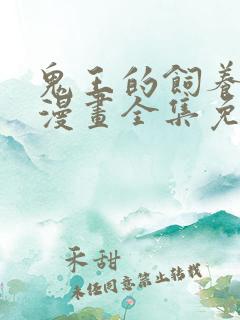 鬼王的飼養
漫畫全集免
禾甜
未经同意禁止转载